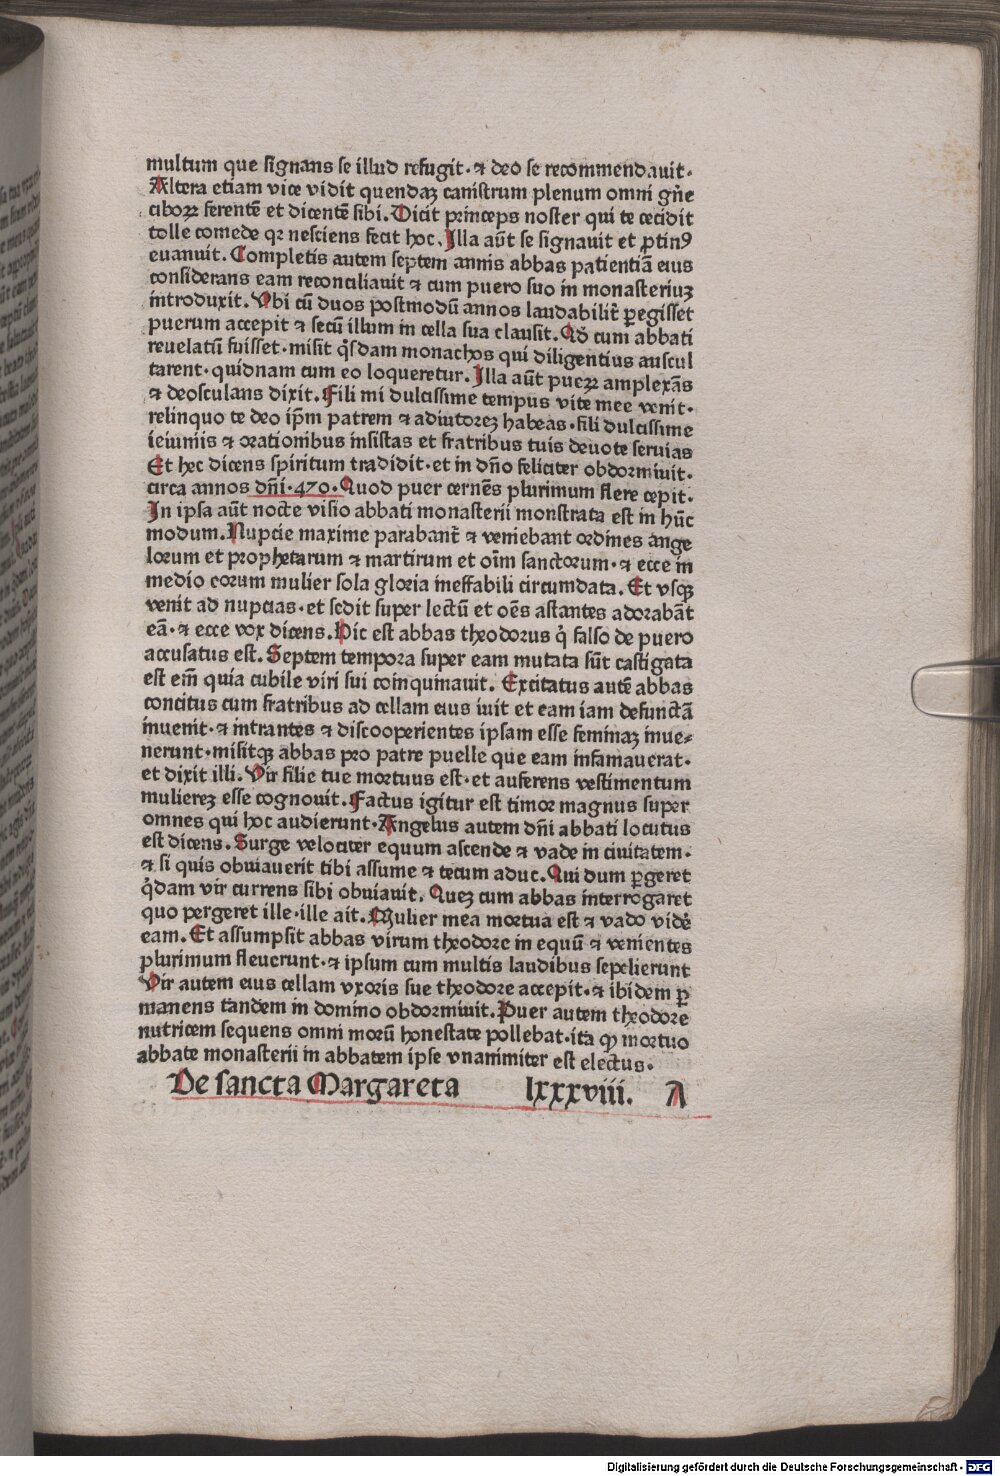 multum que signans se illud refugit· ⁊ deo se recommendauit·
Altera etiam vice vidit quendaꝫ canistrum plenum omni gn̄e
ciboꝝ ferentē et dicentē sibi. Dicit princeps noster qui te cecidit
tolle comede qꝛ nesciens fecit hoc. Illa aūt se signauit et ꝓtinꝰ
euanuit. Completis autem septem annis abbas patientiā eius
considerans eam reconciliauit ⁊ cum puero suo in monasteriuꝫ
introduxit. Vbi cū duos postmodū annos laudabilit̄ ꝑegisset
puerum accepit ⁊ secū illum in cella sua clausit. Qḋ cum abbati
reuelatū fuisset· misit q̇sdam monachos qui diligentius auscul
tarent· quidnam cum eo loqueretur. Illa aūt pueꝝ amplexās
⁊ deosculans dixit. Fili mi dulcissime tempus vite mee venit·
relinquo te deo ip̄m patrem ⁊ adiutoreꝫ habeas· fili dulcissime
ieiuniis ⁊ orationibus insistas et fratribus tuis deuote seruias
Et hec dicens spiritum tradidit· et in dn̄o feliciter obdormiuit.
circa annos dn̄i·470· Quod puer cernēs plurimum flere cepit·
In ipsa aūt nocte visio abbati monasterii monstrata est in hūc
modum. Nupcie maxime parabant̄ ⁊ veniebant ordines ange
lorum et prophetarum ⁊ martirum et oīm sanctorum· ⁊ ecce in
medio eorum mulier sola gloria ineffabili circumdata. Et vsqꝫ
venit ad nupcias· et sedit super lectū et oēs astantes adorabāt
eā· ⁊ ecce vox dicens. Hic est abbas theodorus q̇ falso de puero
accusatus est. Septem tempora super eam mutata sūt castigata
est em̄ quia cubile viri sui coinquinauit. Excitatus autē abbas
concitus cum fratribus ad cellam eius iuit et eam iam defunctā
inuenit· ⁊ intrantes ⁊ discooperientes ipsam esse feminaꝫ inue⸗
nerunt· misitqꝫ abbas pro patre puelle que eam infamauerat·
et dixit illi. Vir filie tue mortuus est· et auferens vestimentum
muliereꝫ esse cognouit. Factus igitur est timor magnus super
omnes qui hoc audierunt· Angelus autem dn̄i abbati locutus
est dicens. Surge velociter equum ascende ⁊ vade in ciuitatem·
⁊ si quis obuiauerit tibi assume ⁊ tecum aduc. Qui dum ꝑgeret
q̇dam vir currens sibi obuiauit. Queꝫ cum abbas interrogaret
quo pergeret ille· ille ait. Mulier mea mortua est ⁊ vado vidē
eam. Et assumpsit abbas virum theodore in equū ⁊ venientes
plurimum fleuerunt· ⁊ ipsum cum multis laudibus sepelierunt
Vir autem eius cellam vxoris sue theodore accepit· ⁊ ibidem ꝑ
manens tandem in domino obdormiuit. Puer autem theodore
nutricem sequens omni morū honestate pollebat· ita ꝙ mortuo
abbate monasterii in abbatem ipse vnanimiter est electus·
De sancta Margareta lxxxviii. A
Digitalisierung gefördert durch die Deutsche Forschungsgemeinschaft - DFG